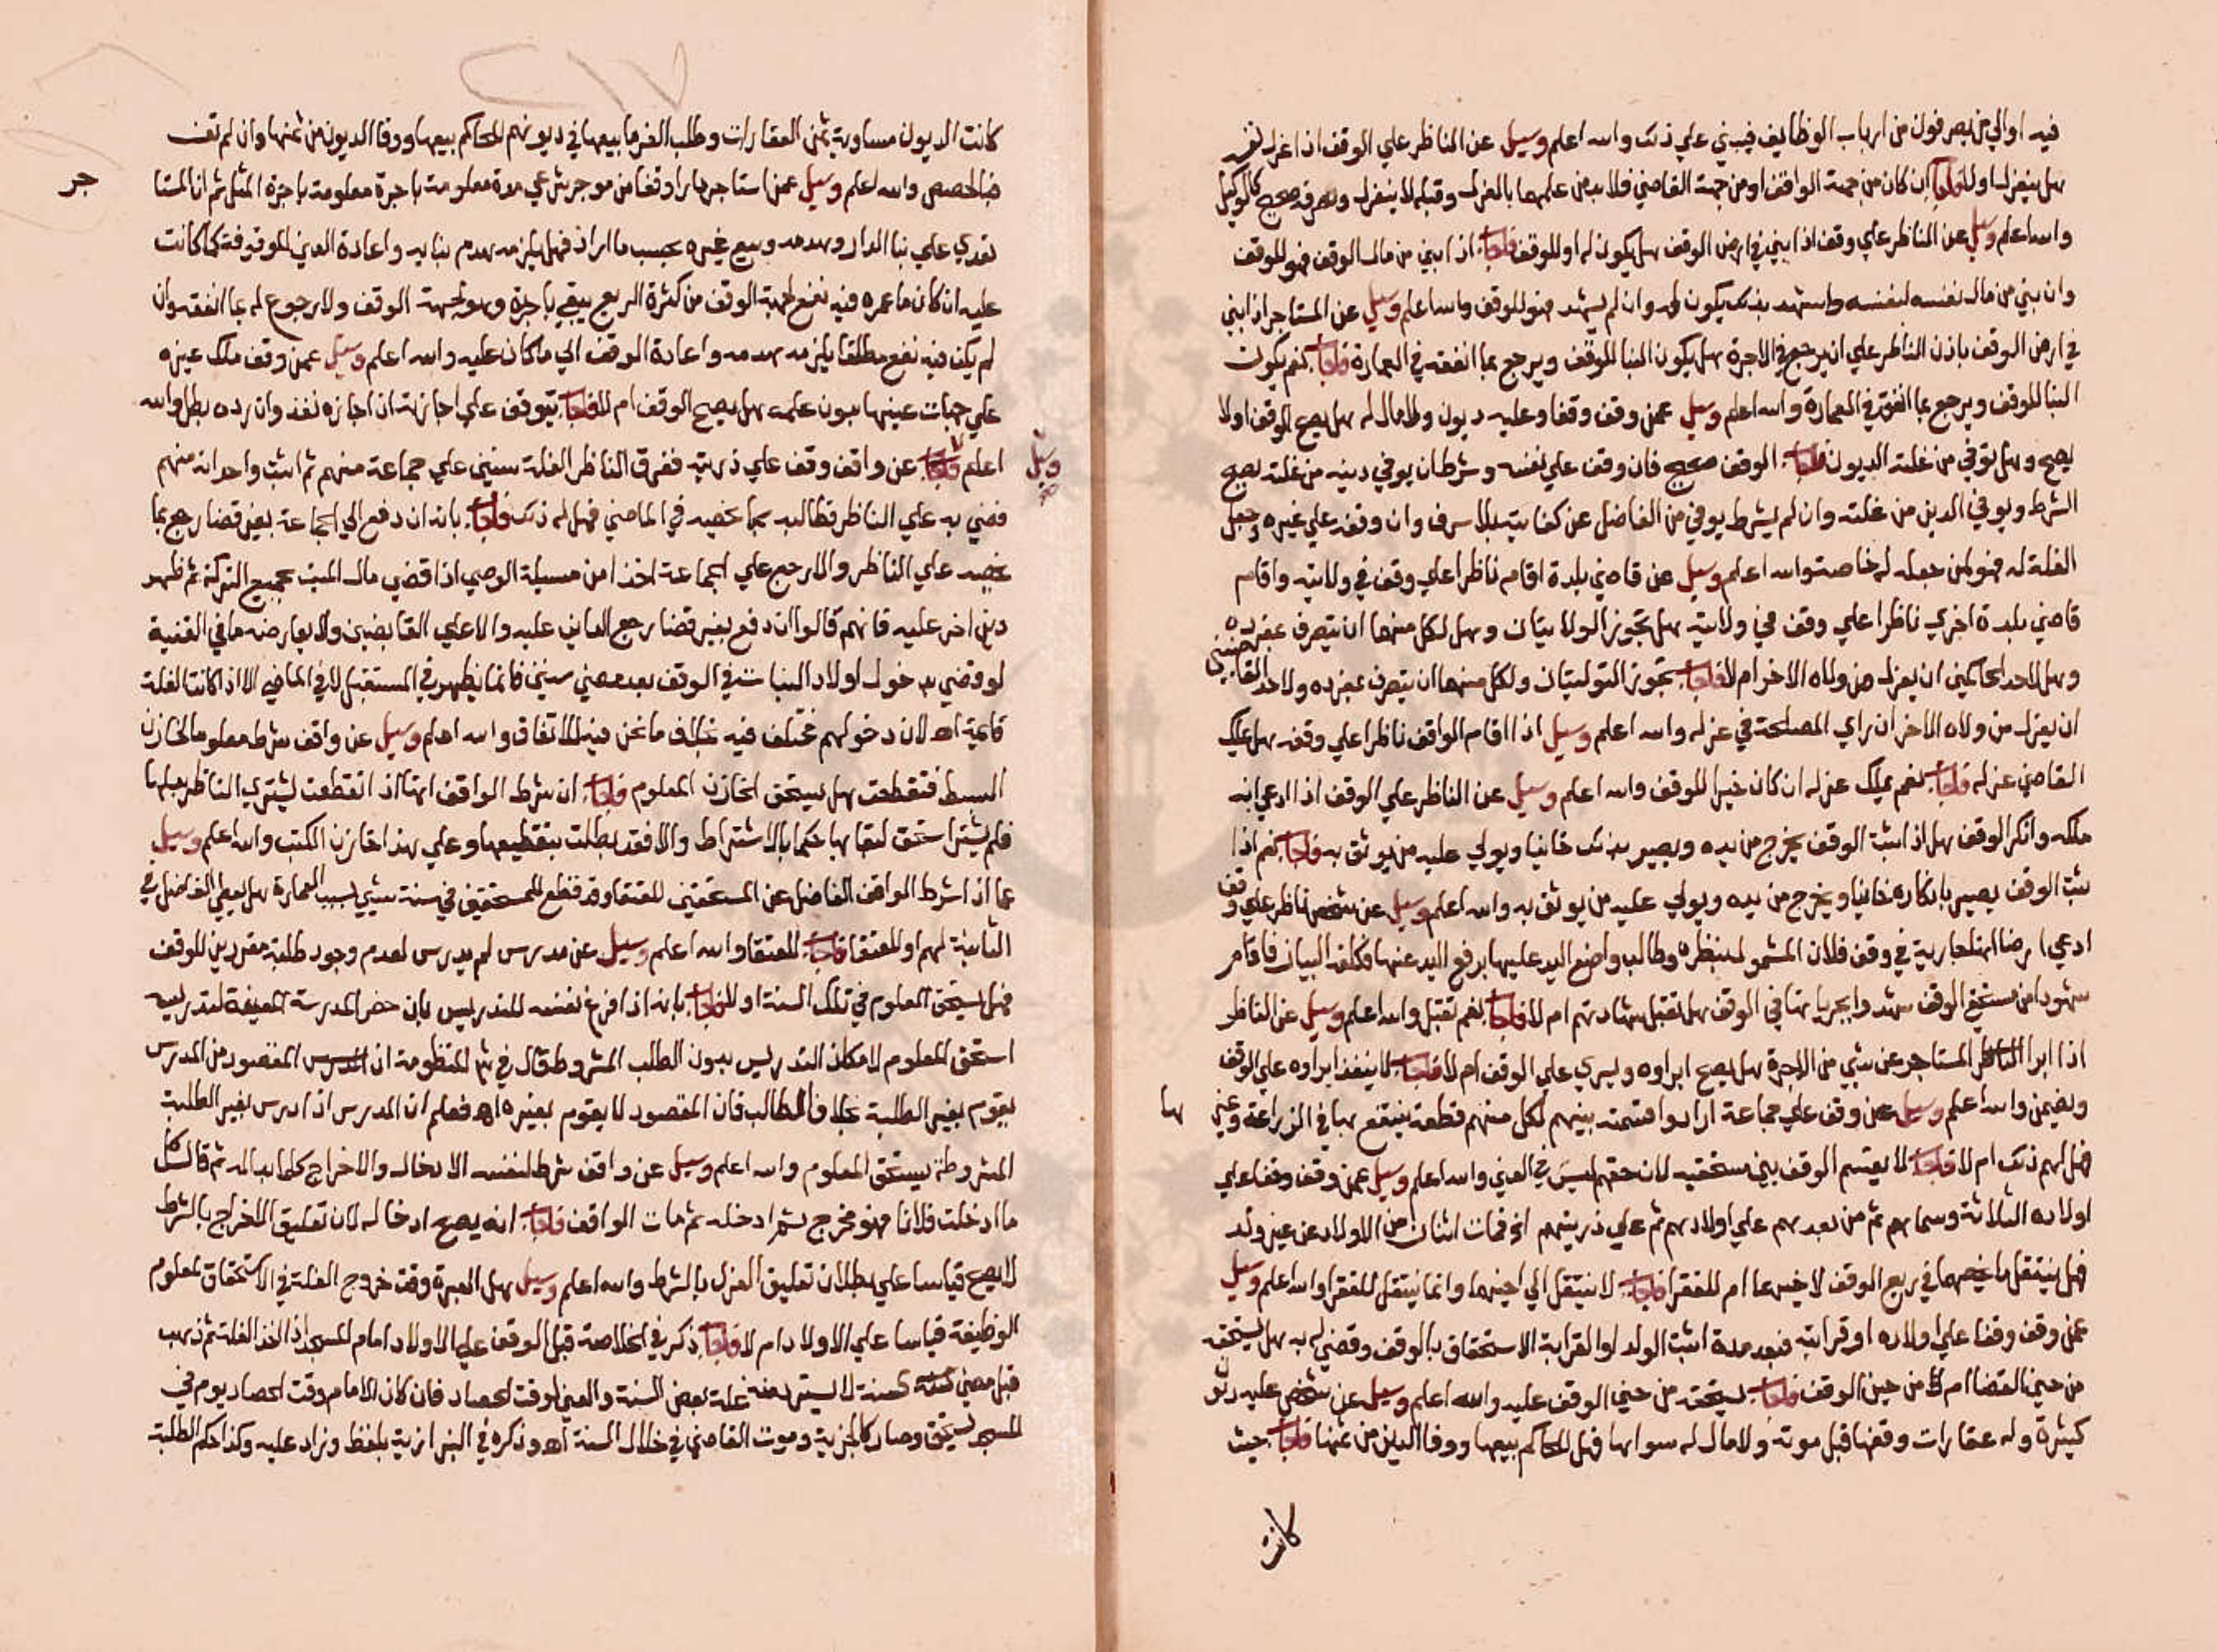 فيه اوالي من يصرفون من ارباب الوظايف فيبني علي ذلك والله اعلم وسيل عن الناظر علي الوقف اذا عزل نفسه
هل ينعزل اولا فاجاب ان كان من جهة الواقف اومن جهة القاضي فلا بد من علمهما بالعزل وقبله لا ينعزل وتصرفه صحيح كالوكيل
والله اعلم وسيل عن الناظر علي وقف اذا ابني في ارض الوقف هل يكون له او للوقف فاجاب اذا بني من مال الوقف فهو للوقف
وان بني من مال نفسه لنفسه واشهد بذلك يكون له وان لم يشهد فهو للوقف والله اعلم وسيل عن المستاجر اذا بني
في ارض الوقف باذن الناظر علي ان يرجع في الاجرة هل يكون البنا للوقف ويرجع بما انفقه في العمارة فاجاب نعم يكون
البنا للوقف ويرجع بما انفق في العمارة والله اعلم وسيل عمن وقف وقفا وعليه ديون ولا مال له هل يصح الوقف اولا
يصح وهل توفي من غلته الديون فاجاب الوقف صحيح فان وقف علي نفسه وشرط ان يوفي دينه من غلته يصح
الشرط ويوفي الدين من غلته وان لم يشرط يوفي من الفاضل عن كفايته بلا سرف وان وقف علي غيره وجعل
الغلة له فهو لمن جعله له خاصة والله اعلم وسيل عن قاضي بلدة اقام ناظرا علي وقف في ولايته واقام
قاضي بلدة اخري ناظرا علي وقف في ولايته هل تجوز الولايتان وهل لكل منهما ان يتصرف بمفرده
وهل لاحد الحاكمين ان يعزل من ولاه الاخر ام لا فاجاب تجوز التوليتان ولكل منهما ان يتصرف بمفرده ولاحد القاضيين
ان يعزل من ولاه الاخر ان راي المصلحة في عزله والله اعلم وسيل اذا اقام الواقف ناظرا علي وقفه هل يملك
القاضي عزله فاجاب نعم يملك عزله ان كان خيرا للوقف والله اعلم وسيل عن الناظر علي الوقف اذا ادعي انه
ملكه وانكر الوقف هل اذا اثبت الوقف يخرج من يده ويصير بذلك خاينا ويولي عليه من يوثق به فاجاب نعم اذا
ثبت الوقف يصير بانكاره خاينا ويخرج من يده ويولي عليه من يوثق به والله اعلم وسيل عن شخص ناظر علي وقف
ادعي ارضا انها جارية في وقف فلان المشمول بنظره وطالب واضع اليد عليها برفع اليد عنها فكلف البيان فاقام
شهودا من مستحقي الوقف شهدوا بجريانها في الوقف هل تقبل شهادتهم ام لا فاجاب نعم تقبل والله اعلم وسيل عن الناظر
اذا ابرا الناظر المستاجر عن شيي من الاجرة هل يصح ابراوه ويسري علي الوقف ام لا فاجاب لا ينفذ ابراوه علي الوقف
ويضمن والله اعلم وسيل عن وقف علي جماعة ارادوا قسمته بينهم لكل منهم قطعة ينتفع بها في الزراعة وغيرها
فهل لهم ذلك ام لا فاجاب لا يقسم الوقف بين مستحقيه لان حقهم ليس في العين والله اعلم وسيل عمن وقف وقفا علي
اولاده الثلاثة وسماهم ثم من بعدهم علي اولادهم ثم علي ذريتهم الخ فمات اثنان من الاولاد عن غير ولد
فهل ينتقل ما خصهما في ريع الوقف لاخيهما ام للفقرا فاجاب لا ينتقل الي اخيهما وانما ينتقل للفقرا والله اعلم وسيل
عمن وقف وقفا علي اولاده او قرابته فبعد مدة اثبت الولد او القرابة الاستحقاق بالوقف وقضي له به هل يستحقه
من حين القضا ام من حين الوقف فاجاب يستحقه من حين الوقف عليه والله اعلم وسيل عن شخص عليه ديون
كثيرة وله عقارات وقفها قبل موته ولا مال له سواها فهل للحاكم بيعها ووفا الدين من ثمنها فاجاب حيث
كانت
كانت الديون مساوية بثمن العقارات وطلب الغرما بيعها في ديونهم للحاكم بيعها ووفا الديون من ثمنها وان لم تف
فبالحصص والله اعلم وسيل عمن استاجر دارا وقفا من موجر شرعي مدة معلومة باجرة معلومة باجرة المثل ثم ان المستاجر
تعدي علي بنا الدار وهدمه وبيع غيره بحسب ما اراد فهل يلزمه هدم بنايه واعادة العين الموقوفة كما كانت
عليه ان كان ما عمره فيه نفع لجهة الوقف من كثرة الريع يبقي باجرة وهو لجهة الوقف ولا رجوع له بما انفقه وان
لم يكن فيه نفع مطلقا يلزمه هدمه واعادة الوقف الي ما كان عليه والله اعلم وسيل عمن وقف ملك غيره
علي جهات عينها بدون علمه هل يصح الوقف ام لا فاجاب يتوقف علي اجازته ان اجازه نفذ وان رده بطل والله
اعلم وسيل فاجاب عن واقف وقف علي ذريته ففرق الناظر الغلة سنين علي جماعة منهم ثم اثبت واحد انه منهم
وقضي به علي الناظر فطالبه بما يخصه في الماضي فهل له ذلك فاجاب بانه ان دفع الي الجماعة بغير قضا رجع بما
يخصه علي الناظر والا رجع علي الجماعة اخذا من مسيلة الوصي اذا قضي مال الميت بجميع التركة ثم ظهر
دين اخر عليه فانهم قالوا ان دفع بغير قضا رجع الغايب عليه والا علي القابضين ولا يعارضه ما في القنية
لو قضي بدخول اولاد البنات في الوقف بعد مضي سنين فانما يظهر في المستقبل لا في الماضي الا اذا كانت الغلة
قايمة اه لان دخولهم مختلف فيه بخلاف ما نحن فيه للاتفاق والله اعلم وسيل عن واقف شرط معلوما لخازن
البسط فتقطعت هل يستحق الخازن المعلوم فاجاب ان شرط الواقف انها اذا انقطعت يشتري الناظر بدلها
فلم يشتر استحق لبقايها حكما بالاشتراط والا فقد بطلت بتقطيعها وعلي هذا خازن الكتب والله اعلم وسيل
عما اذا اشرط الواقف الفاضل عن المستحقين للعتقا وقد قطع للمستحقين في سنة شيي بسبب العمارة هل يعطي الفاضل في
الثانية لهم او للعتقا فاجاب للعتقا والله اعلم وسيل عن مدرس لم يدرس لعدم وجود طلبة مقررين للوقف
فهل يستحق المعلوم في تلك السنة اولا فاجاب بانه اذا فرغ نفسه للتدريس بان حضر المدرسة المعينة لتدريسه
استحق المعلوم لامكان التدريس بدون الطلب المشروط قال في شرح المنظومة ان المقصود من المدرس
يقوم بغير الطلبة بخلاف الطالب فان المقصود لا يقوم بغيره اه فعلم ان المدرس اذا درس بغير الطلبة
المشروطة يستحق المعلوم والله اعلم وسيل عن واقف شرط لنفسه الادخال والاخراج كلما بدا له ثم قال كل
ما ادخلت فلانا فهو مخرج ثم ادخله ثم مات الواقف فاجاب انه يصح ادخاله لان تعليق الاخراج بالشرط
لا يصح قياسا علي بطلان تعليق العزل بالشرط والله اعلم وسيل هل العبرة وقت خروج الغلة في الاستحقاق لمعلوم
الوظيفة قياسا علي الاولاد ام لا فاجاب ذكر في الخلاصة قبل الوقف علي الاولاد امام المسجد اذا اخذ الغلة ثم ذهب
قبل مضي السنة لا يسترد منه غلة بعض السنة والعين لوقت الحصاد فان كان الامام وقت الحصاد يوم في
المسجد يستحق وصار كالجزية وموت القاضي في خلال السنة اه وذكره في البزازية بلفظ وزاد عليه وكذا حكم الطلبة